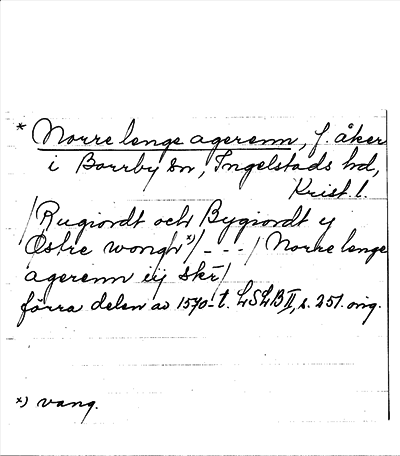 * Norre lenge agerenn, f. åker
i Borrby sn, Ingelstads hd,
Krist l.
/Rugiordt och Bygiordt y
Østre wongh*)/ - - - / Norre lenge
agerenn iij skr/
förra delen av 1570-t. LSLB II, s. 251. orig.
*) vang.